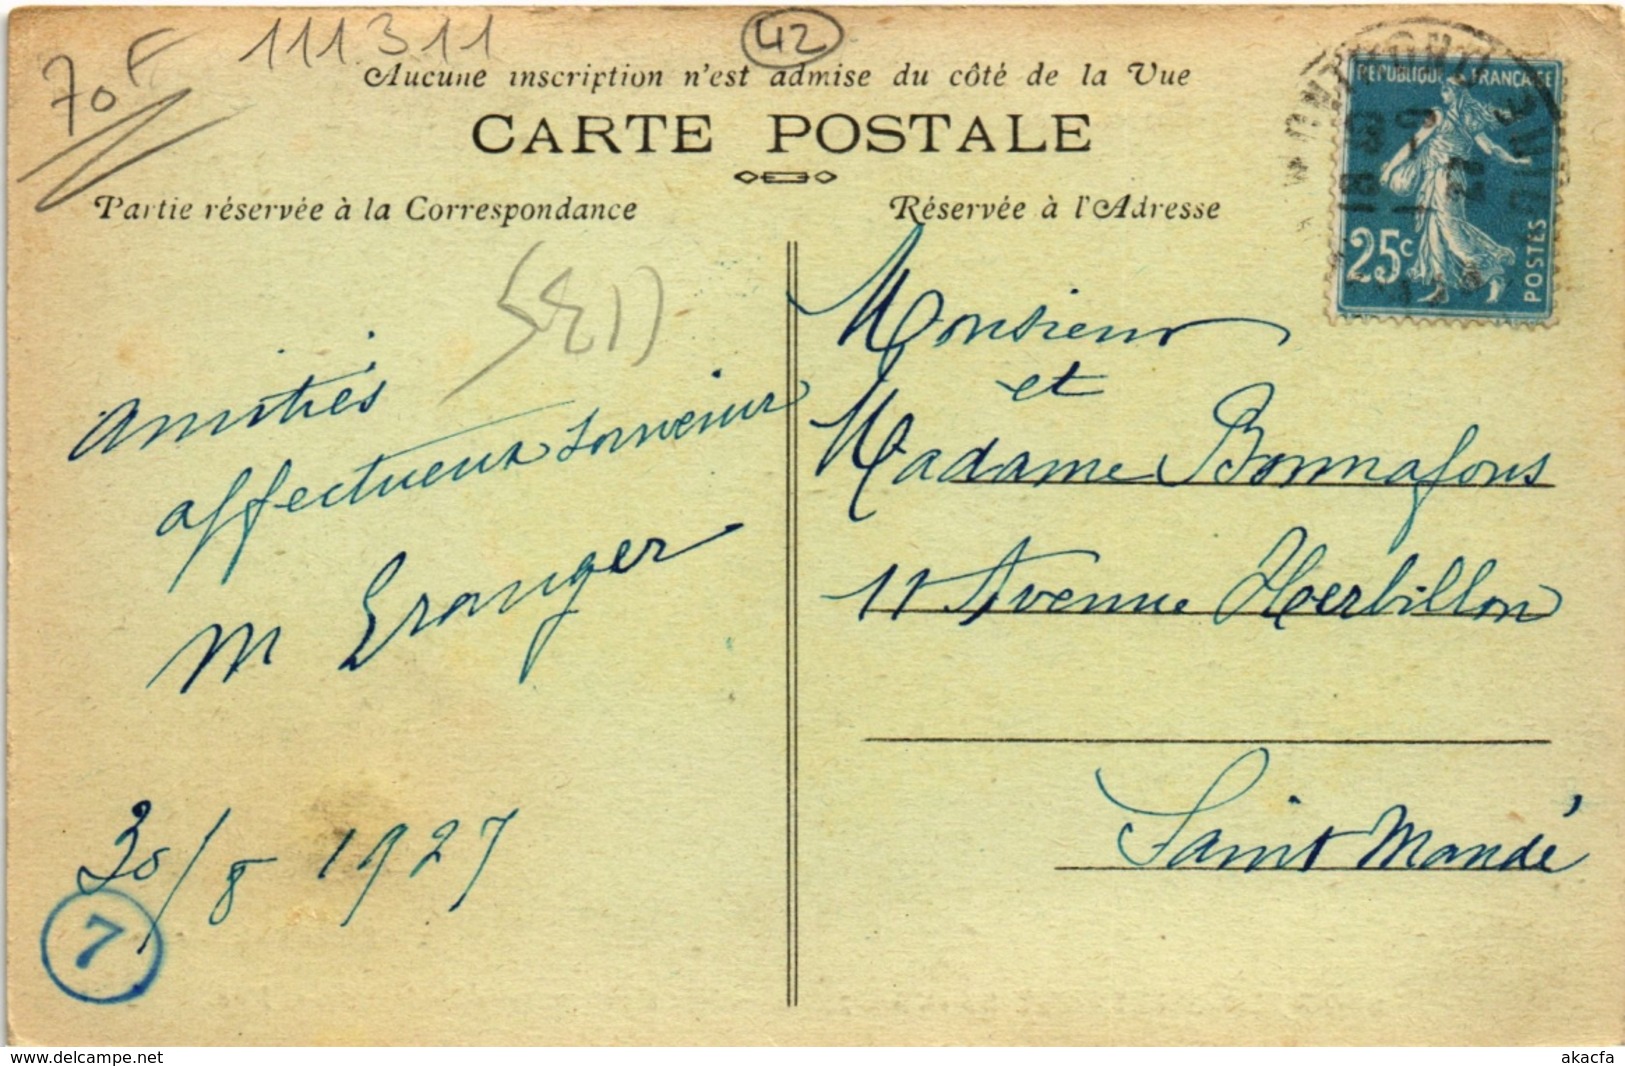 70F
111311
42
Aucune inscription n'est admise du côté de la Vue
CARTE POSTALE
Partie réservée à la Correspondance
Réservée à l'Adresse
REPUBLIQUE FRANÇAISE
25c
POSTES
Amitiés
affectueux souvenir
M Eranger
30/8 1927
7
Monsieur
et
Madame Bonnafous
11 Avenue Herbillon
Saint Mandé
www.delcampe.net
akacfa